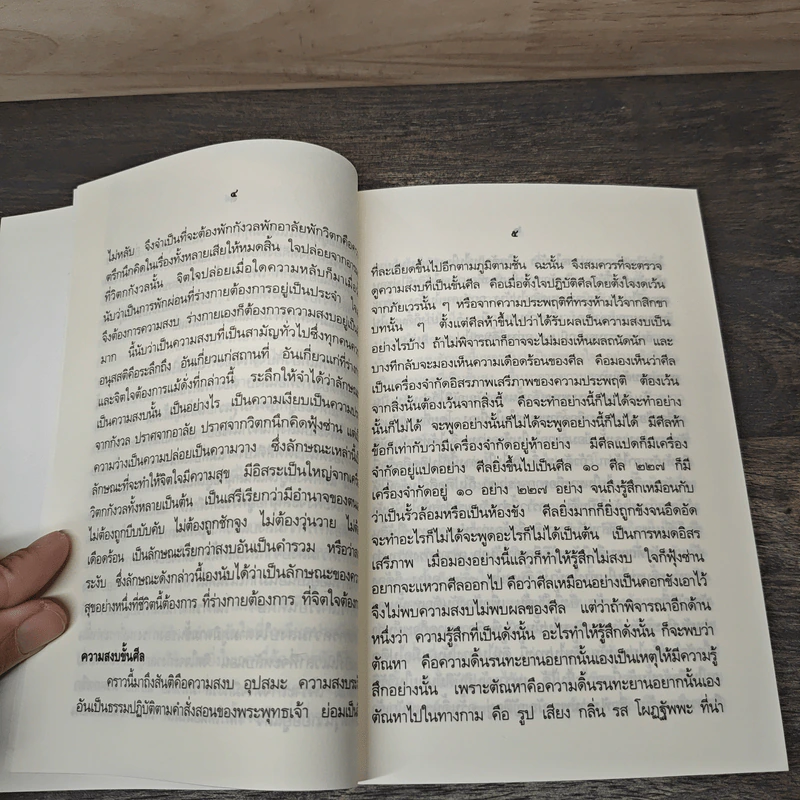 ๔
ไม่หลับ จึงจำเป็นที่จะต้องพักกังวลพักอาลัยพักวิตกคือ
ตรึกนึกคิดในเรื่องทั้งหลายเสียให้หมดสิ้น ใจปล่อยจาก
ที่วิตกกังวลนั้น จิตใจปล่อยเมื่อใดความหลับก็มาเมื่อ
นับว่าเป็นการพักผ่อนที่ร่างกายต้องการอยู่เป็นประจำ
จึงต้องการความสงบ ร่างกายเองก็ต้องการความสงบอยู่
มาก นี้นับว่าเป็นความสงบที่เป็นสามัญทั่วไปซึ่งทุกคน
อนุสสติคือระลึกถึง อันเกี่ยวแก่สถานที่ อันเกี่ยวแก่ที่
และจิตใจต้องการแม้ดังที่กล่าวนี้ ระลึกให้จำได้ว่า
เป็นความสงบนั้น เป็นอย่างไร เป็นความเงียบเป็นความ
จากกังวล ปราศจากอาลัย ปราศจากวิตกนึกคิดฟุ้งซ่าน
ความว่างเป็นความปล่อยเป็นความวาง ซึ่งลักษณะเหล่านี้
ลักษณะที่จะทำให้จิตใจมีความสุข มีอิสระเป็นใหญ่จาก
วิตกกังวลทั้งหลายเป็นต้น เป็นเสรีเรียกว่ามีอำนาจของ
ไม่ต้องถูกบีบบังคับ ไม่ต้องถูกชักจูง ไม่ต้องวุ่นวาย
เดือดร้อน เป็นลักษณะเรียกว่าสงบอันเป็นคำรวม หรือว่า
ระงับ ซึ่งลักษณะดังกล่าวนี้เองนับได้ว่าเป็นลักษณะของ
สุขอย่างหนึ่งที่ชีวิตนี้ต้องการ ที่ร่างกายต้องการ ที่จิตใจ
ความสงบขั้นศีล
คราวนี้มาถึงสันติคือความสงบ อุปสมะ ความสงบ
อันเป็นธรรมปฏิบัติตามคำสั่งสอนของพระพุทธเจ้า ย่อม
๕
ที่ละเอียดขึ้นไปอีกตามภูมิตามชั้น ฉะนั้น จึงสมควรที่จะตรวจ
ดูความสงบที่เป็นขั้นศีล คือเมื่อตั้งใจปฏิบัติศีลโดยตั้งใจงดเว้น
จากภัยเวรนั้น ๆ หรือจากความประพฤติที่ทรงห้ามไว้จากสิกขา
บทนั้น ๆ ตั้งแต่ศีลห้าขึ้นไปว่าได้รับผลเป็นความสงบเป็น
อย่างไรบ้าง ถ้าไม่พิจารณาก็อาจจะไม่มองเห็นผลถนัดนัก และ
บางทีกลับจะมองเห็นความเดือดร้อนของศีล คือมองเห็นว่าศีล
เป็นเครื่องจำกัดอิสรภาพเสรีภาพของความประพฤติ ต้องเว้น
จากสิ่งนั้นต้องเว้นจากสิ่งนี้ คือจะทำอย่างนี้ก็ไม่ได้จะทำอย่าง
นั้นก็ไม่ได้ จะพูดอย่างนั้นก็ไม่ได้จะพูดอย่างนี้ก็ไม่ได้ มีศีลห้า
ข้อก็เท่ากับว่ามีเครื่องจำกัดอยู่ห้าอย่าง มีศีลแปดก็มีเครื่อง
จำกัดอยู่แปดอย่าง ศีลยิ่งขึ้นไปเป็นศีล ๑๐ ศีล ๒๒๗ ก็มี
เครื่องจำกัดอยู่ ๑๐ อย่าง ๒๒๗ อย่าง จนถึงรู้สึกเหมือนกับ
ว่าเป็นรั้วล้อมหรือเป็นห้องขัง ศีลยิ่งมากก็ยิ่งถูกขังจนอึดอัด
จะทำอะไรก็ไม่ได้จะพูดอะไรก็ไม่ได้เป็นต้น เป็นการหมดอิสร
เสรีภาพ เมื่อมองอย่างนี้แล้วก็ทำให้รู้สึกไม่สงบ ใจก็ฟุ้งซ่าน
อยากจะแหวกศีลออกไป คือว่าศีลเหมือนอย่างเป็นคอกขังเอาไว้
จึงไม่พบความสงบไม่พบผลของศีล แต่ว่าถ้าพิจารณาอีกด้าน
หนึ่งว่า ความรู้สึกที่เป็นดั่งนั้น อะไรทำให้รู้สึกดั่งนั้น ก็จะพบว่า
ตัณหา คือความดิ้นรนทะยานอยากนั้นเองเป็นเหตุให้มีความรู้
สึกอย่างนั้น เพราะตัณหาคือความดิ้นรนทะยานอยากนั้นเอง
ตัณหาไปในทางกาม คือ รูป เสียง กลิ่น รส โผฏฐัพพะ ที่น่า